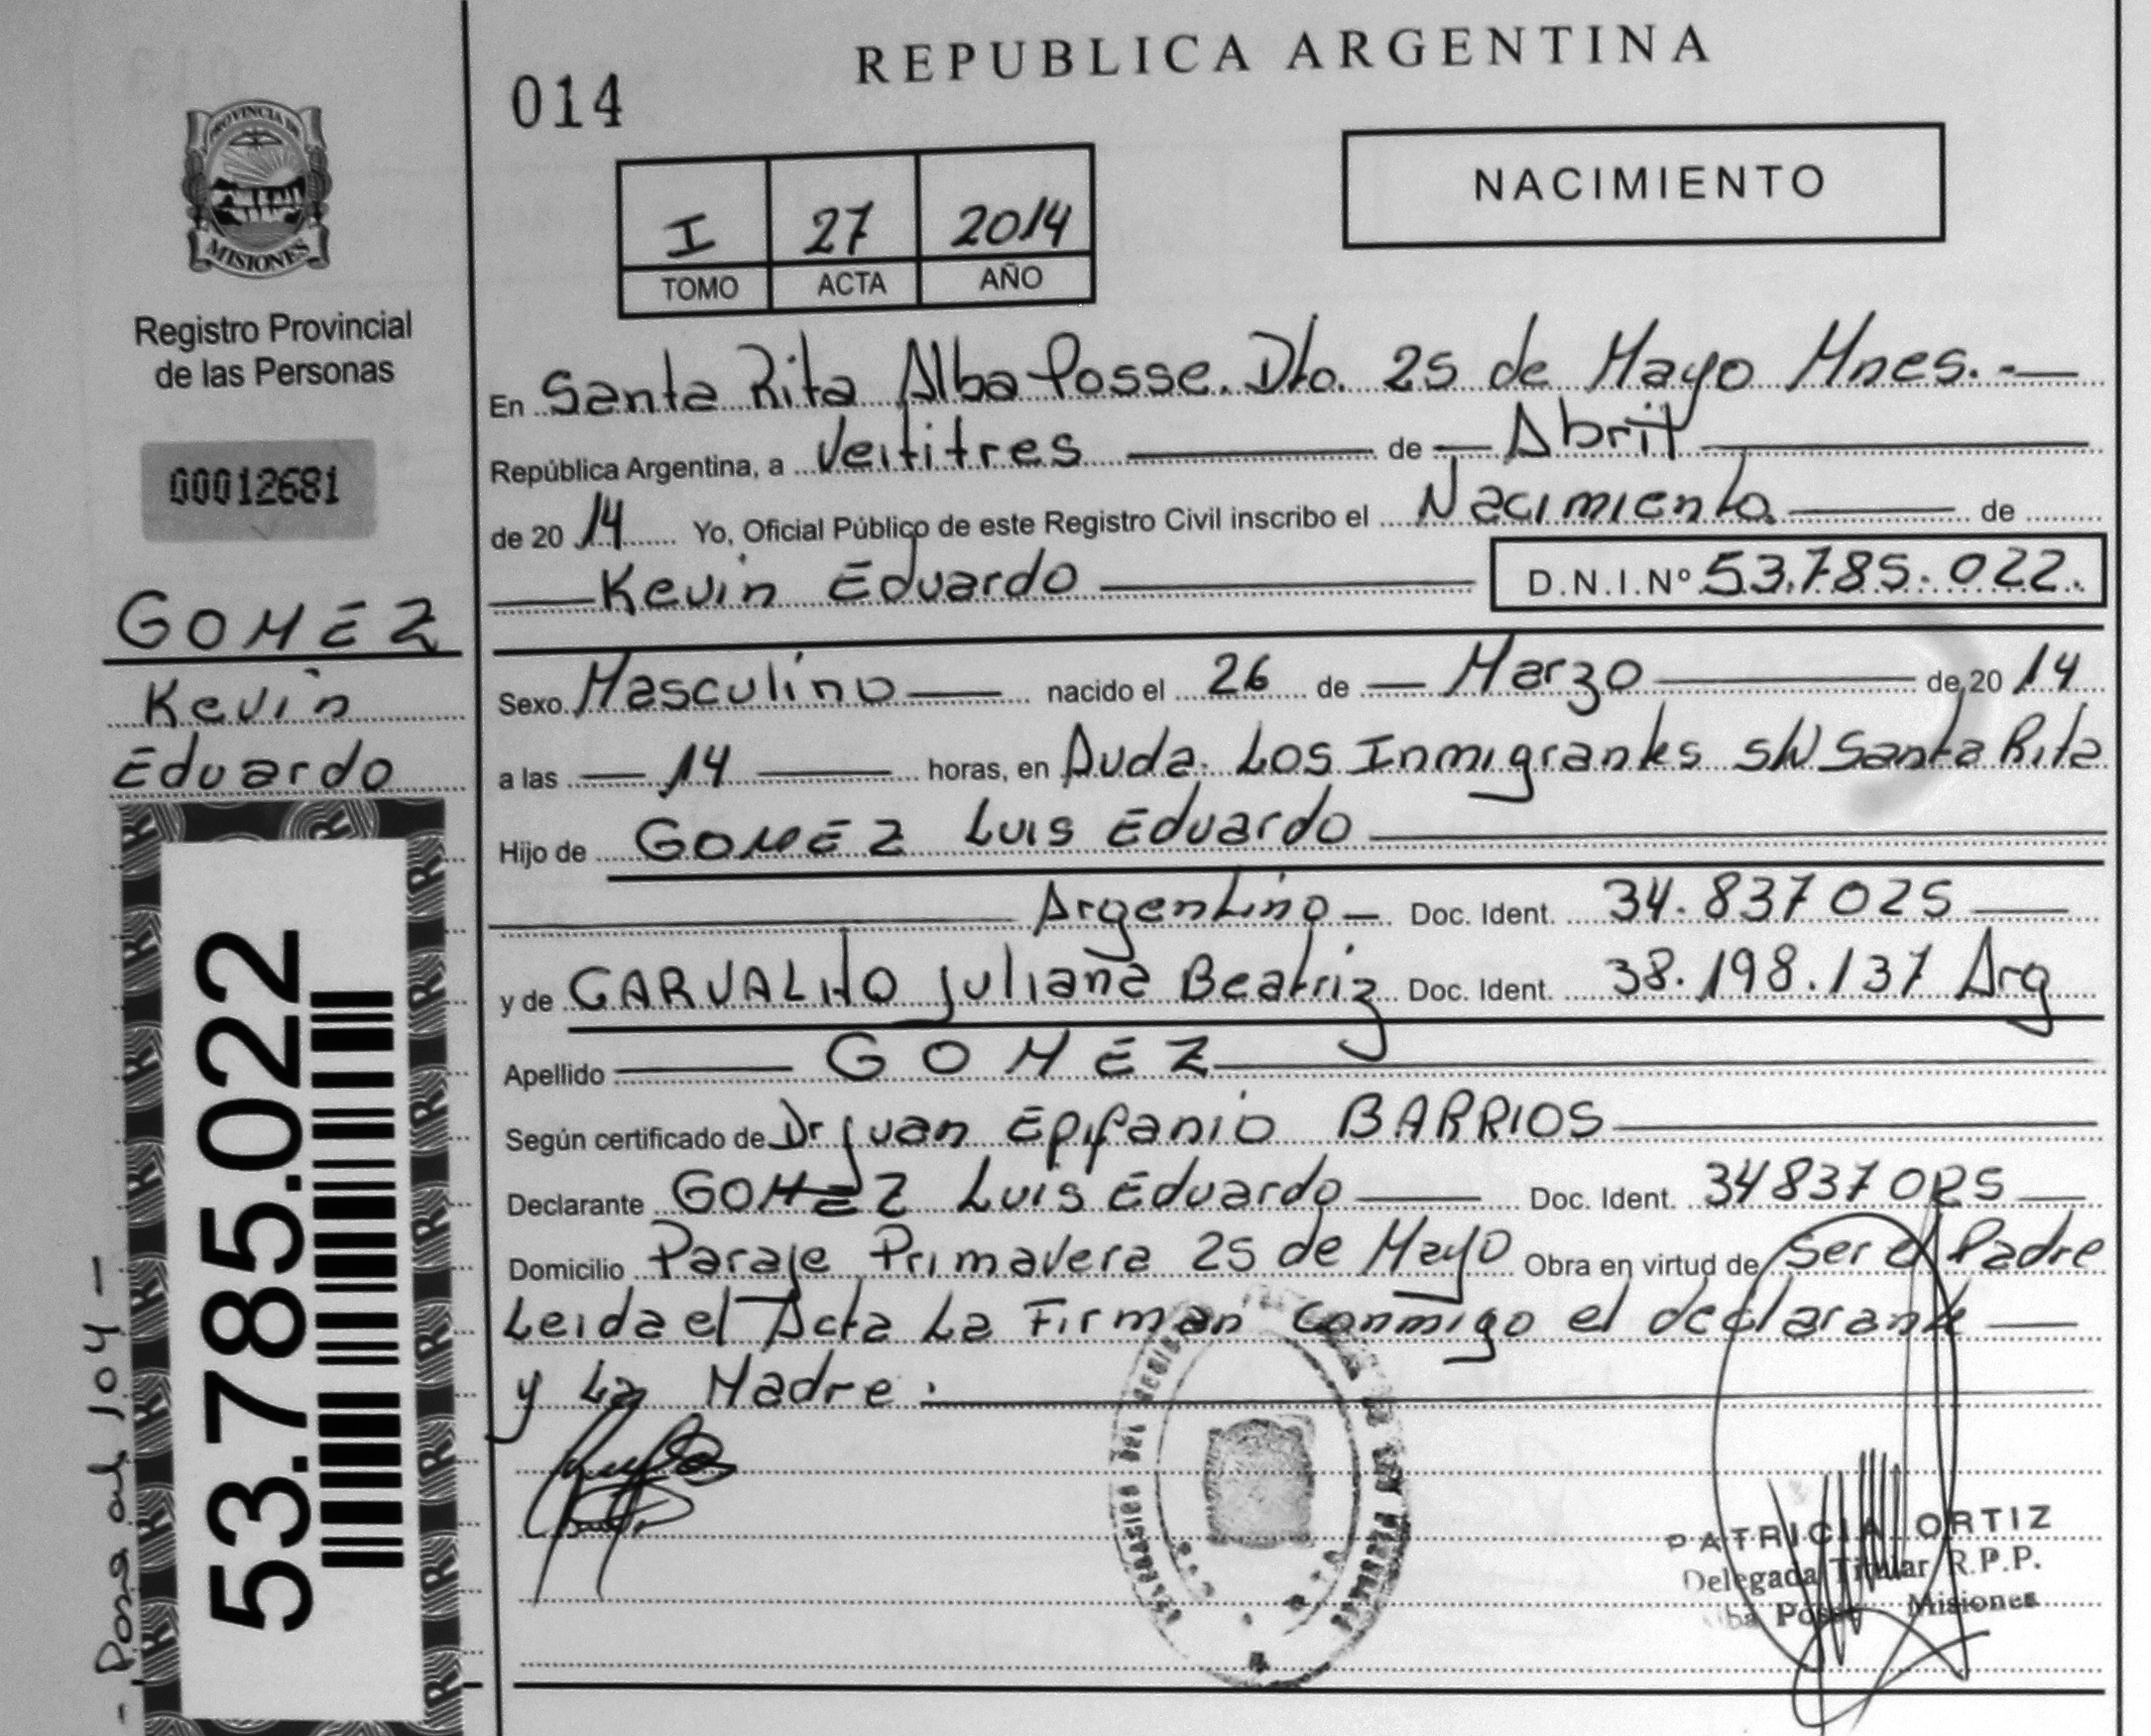 REPUBLICA ARGENTINA
014
NACIMIENTO
I 27 2014
TOMO ACTA AÑO
PROVINCIA DE
MISIONES
Registro Provincial
de las Personas
00012681
GOMEZ
Kevin
Eduardo
53.785.022
En Santa Rita Alba Posse. Dto. 25 de Mayo Mnes.-
República Argentina, a Veititres de Abril
de 2014 Yo, Oficial Público de este Registro Civil inscribo el Nacimiento de
Kevin Eduardo D.N.I.Nº 53.785.022.
Sexo Masculino nacido el 26 de Marzo de 2014
a las 14 horas, en Avda. Los Inmigrantes s/N Santa Rita
Hijo de GOMEZ Luis Eduardo
Argentino Doc. Ident. 34.837025
y de CARVALHO Juliana Beatriz Doc. Ident. 38.198.137 Arg
Apellido GOMEZ
Según certificado de Dr Juan Epifanio BARRIOS
Declarante GOMEZ Luis Eduardo Doc. Ident. 34837025
Domicilio Paraje Primavera 25 de Mayo Obra en virtud de Ser el Padre
Leida el Acta La Firman conmigo el declarante
y La Madre.
PATRICIA ORTIZ
Delegada Titular R.P.P.
Alba Posse Misiones